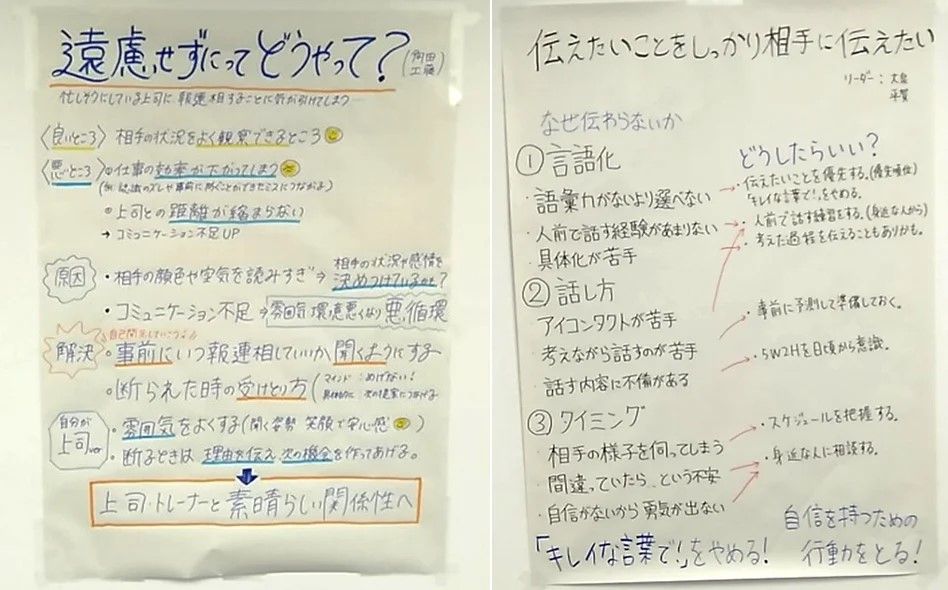 遠慮せずにってどうやって?
(角田 工藤)
忙しそうにしている上司に、報連相することに気が引けてしまう
〈良いところ〉相手の状況をよく観察できるところ
〈悪いところ〉◎仕事の効率が下がってしまう
(例:認識のズレや事前に防ぐことができたミスにつながる)
◎上司との距離が縮まらない
→コミュニケーション不足UP
原因
・相手の顔色や空気を読みすぎ⇒
相手の状況や感情を
決めつけているかも?
・コミュニケーション不足⇒雰囲気 環境悪くなり 悪循環
解決
自己開示していこうよ
・事前にいつ報連相していいか聞くようにする
◎断られた時の受けとり方
(マインド:めげない!
具体的に:次の提案につなげる)
自分が上司ver
・雰囲気をよくする(聞く姿勢 笑顔で安心感)
・断るときは 理由を伝え、次の機会を作ってあげる。
上司・トレーナーと素晴らしい関係性へ
伝えたいことをしっかり相手に伝えたい
リーダー:
平賀
なぜ伝わらないか
①言語化
・語彙力がないより選べない
・人前で話す経験があまりない
・具体化が苦手
②話し方
・アイコンタクトが苦手
・考えながら話すのが苦手
・話す内容に不備がある
③タイミング
・相手の様子を伺ってしまう
・間違っていたら…という不安
・自信がないから勇気が出ない
どうしたらいい?
・伝えたいことを優先する。(優先順位)
「キレイな言葉で!」をやめる。
・人前で話す練習をする。(身近な人から)
・考えた過程を伝えることもありかも。
・事前に予測して準備しておく。
・5W2Hを日頃から意識。
・スケジュールを把握する。
・身近な人に相談する。
自信を持つための
行動をとる!
「キレイな言葉で!」をやめる!